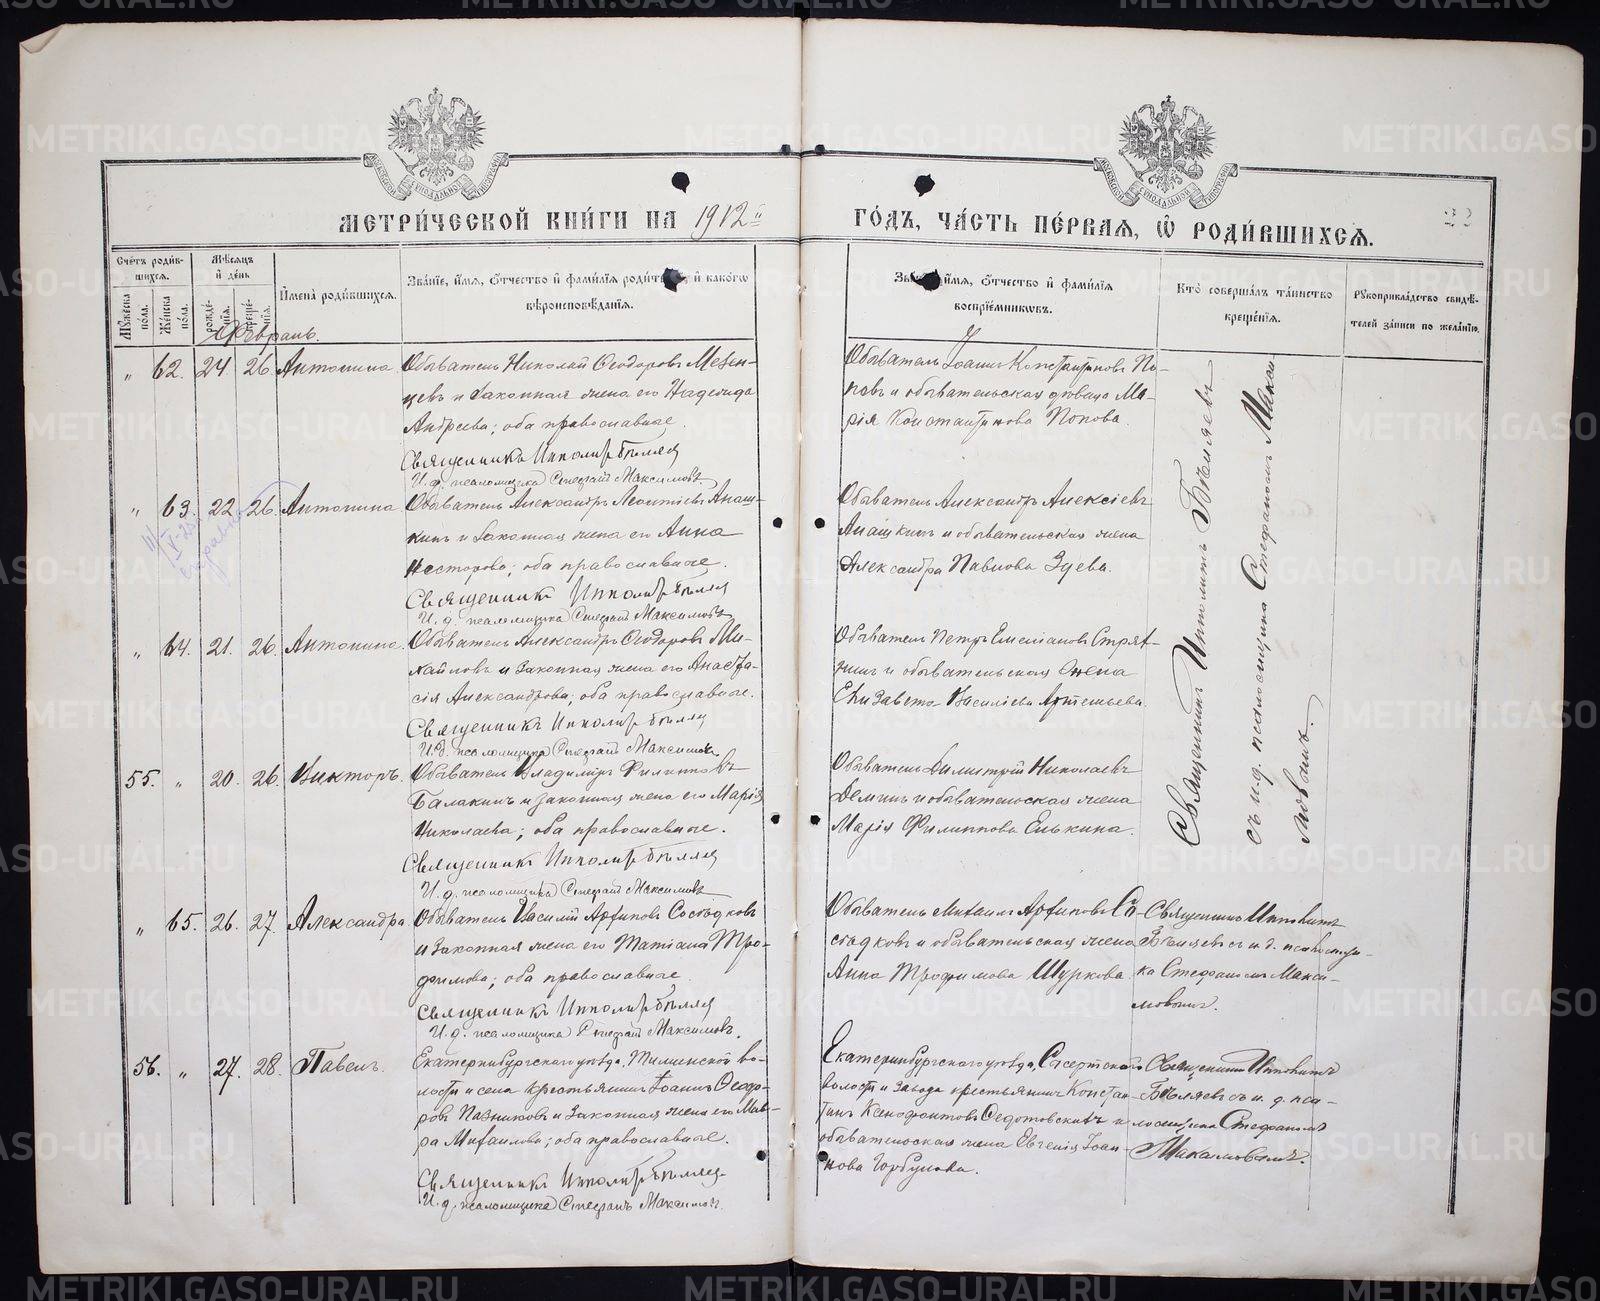 МЕТРИЧЕСКОЙ КНИГИ НА 1912й
ГОДЪ, ЧАСТЬ ПЕРВАЯ, Ѡ РОДИВШИХСЯ.
Счетъ родившихся.
Мужеска пола.
Женска пола.
Мѣсяцъ и день
рожденія.
крещенія.
Имена родившихся.
Званіе, имя, отчество и фамилія родителей, и какого
вѣроисповѣданія.
Званіе, имя, отчество и фамилія
воспріемниковъ.
Кто совершалъ таинство
крещенія.
Рукоприкладство свидѣ-
телей записи по желанію.
Февраль.
„ 62. 24. 26. Антонина.
Обыватель Николай Ѳеодоровъ Мезен-
цевъ и законная жена его Надежда
Андреева; оба православные.
Священникъ Ипполитъ Бѣляевъ
И. д. псаломщика Стефанъ Максимовъ
Обыватель Іоаннъ Константиновъ По-
повъ и обывательская дѣвица Ма-
рія Константинова Попова.
„ 63. 22. 26. Антонина
Обыватель Александръ Леонтіевъ Анаш-
кинъ и законная жена его Анна
Несторова; оба православные.
Священникъ Ипполитъ Бѣляевъ
И. д. псаломщика Стефанъ Максимовъ
Обыватель Александръ Алексіевъ
Анашкинъ и обывательская жена
Александра Павлова Зуева.
„ 64. 21. 26. Антонина.
Обыватель Александръ Ѳеодоровъ Ми-
хайловъ и законная жена его Анаста-
сія Александрова; оба православные.
Священникъ Ипполитъ Бѣляевъ
И. д. псаломщика Стефанъ Максимовъ
Обыватель Петръ Емеліановъ Стряп-
нинъ и обывательская жена
Елизавета Василіева Артемьева.
55. „ 20. 26. Викторъ.
Обыватель Владиміръ Филипповъ
Балакинъ и законная жена его Марія
Николаева; оба православные.
Священникъ Ипполитъ Бѣляевъ
И. д. псаломщика Стефанъ Максимовъ
Обыватель Димитрій Николаевъ
Деминъ и обывательская жена
Марія Филиппова Елькина.
Священникъ Ипполитъ Бѣляевъ
съ и. д. псаломщика Стефаномъ Макси
мовымъ.
„ 65. 26. 27. Александра
Обыватель Василій Архиповъ Состадковъ
и законная жена его Татіана Тро-
фимова; оба православные.
Священникъ Ипполитъ Бѣляевъ
И. д. псаломщика Стефанъ Максимовъ.
Обыватель Михаилъ Архиповъ Со-
стадковъ и обывательская жена
Анна Трофимова Шуркова.
Священникъ Ипполитъ
Бѣляевъ съ и. д. псаломщи-
ка Стефаномъ Макси-
мовымъ.
56. „ 27. 28. Павелъ.
Екатеринбургскаго уѣзда, во-
лости и села крестьянинъ Іоаннъ Ѳеодо-
ровъ Пазниковъ и законная жена его Мав-
ра Михаилова; оба православные.
Священникъ Ипполитъ Бѣляевъ
И. д. псаломщика Стефанъ Максимовъ.
Екатеринбургскаго уѣзда, Сысертской
волости и завода крестьянинъ Констан-
тинъ Ксенофонтовъ Ѳедотовскихъ и
обывательская жена Евгенія Іоан-
нова Горбунова.
Священникъ Ипполитъ
Бѣляевъ съ и. д. пса-
ломщика Стефаномъ
Максимовымъ.
METRIKI.GASO-URAL.RU